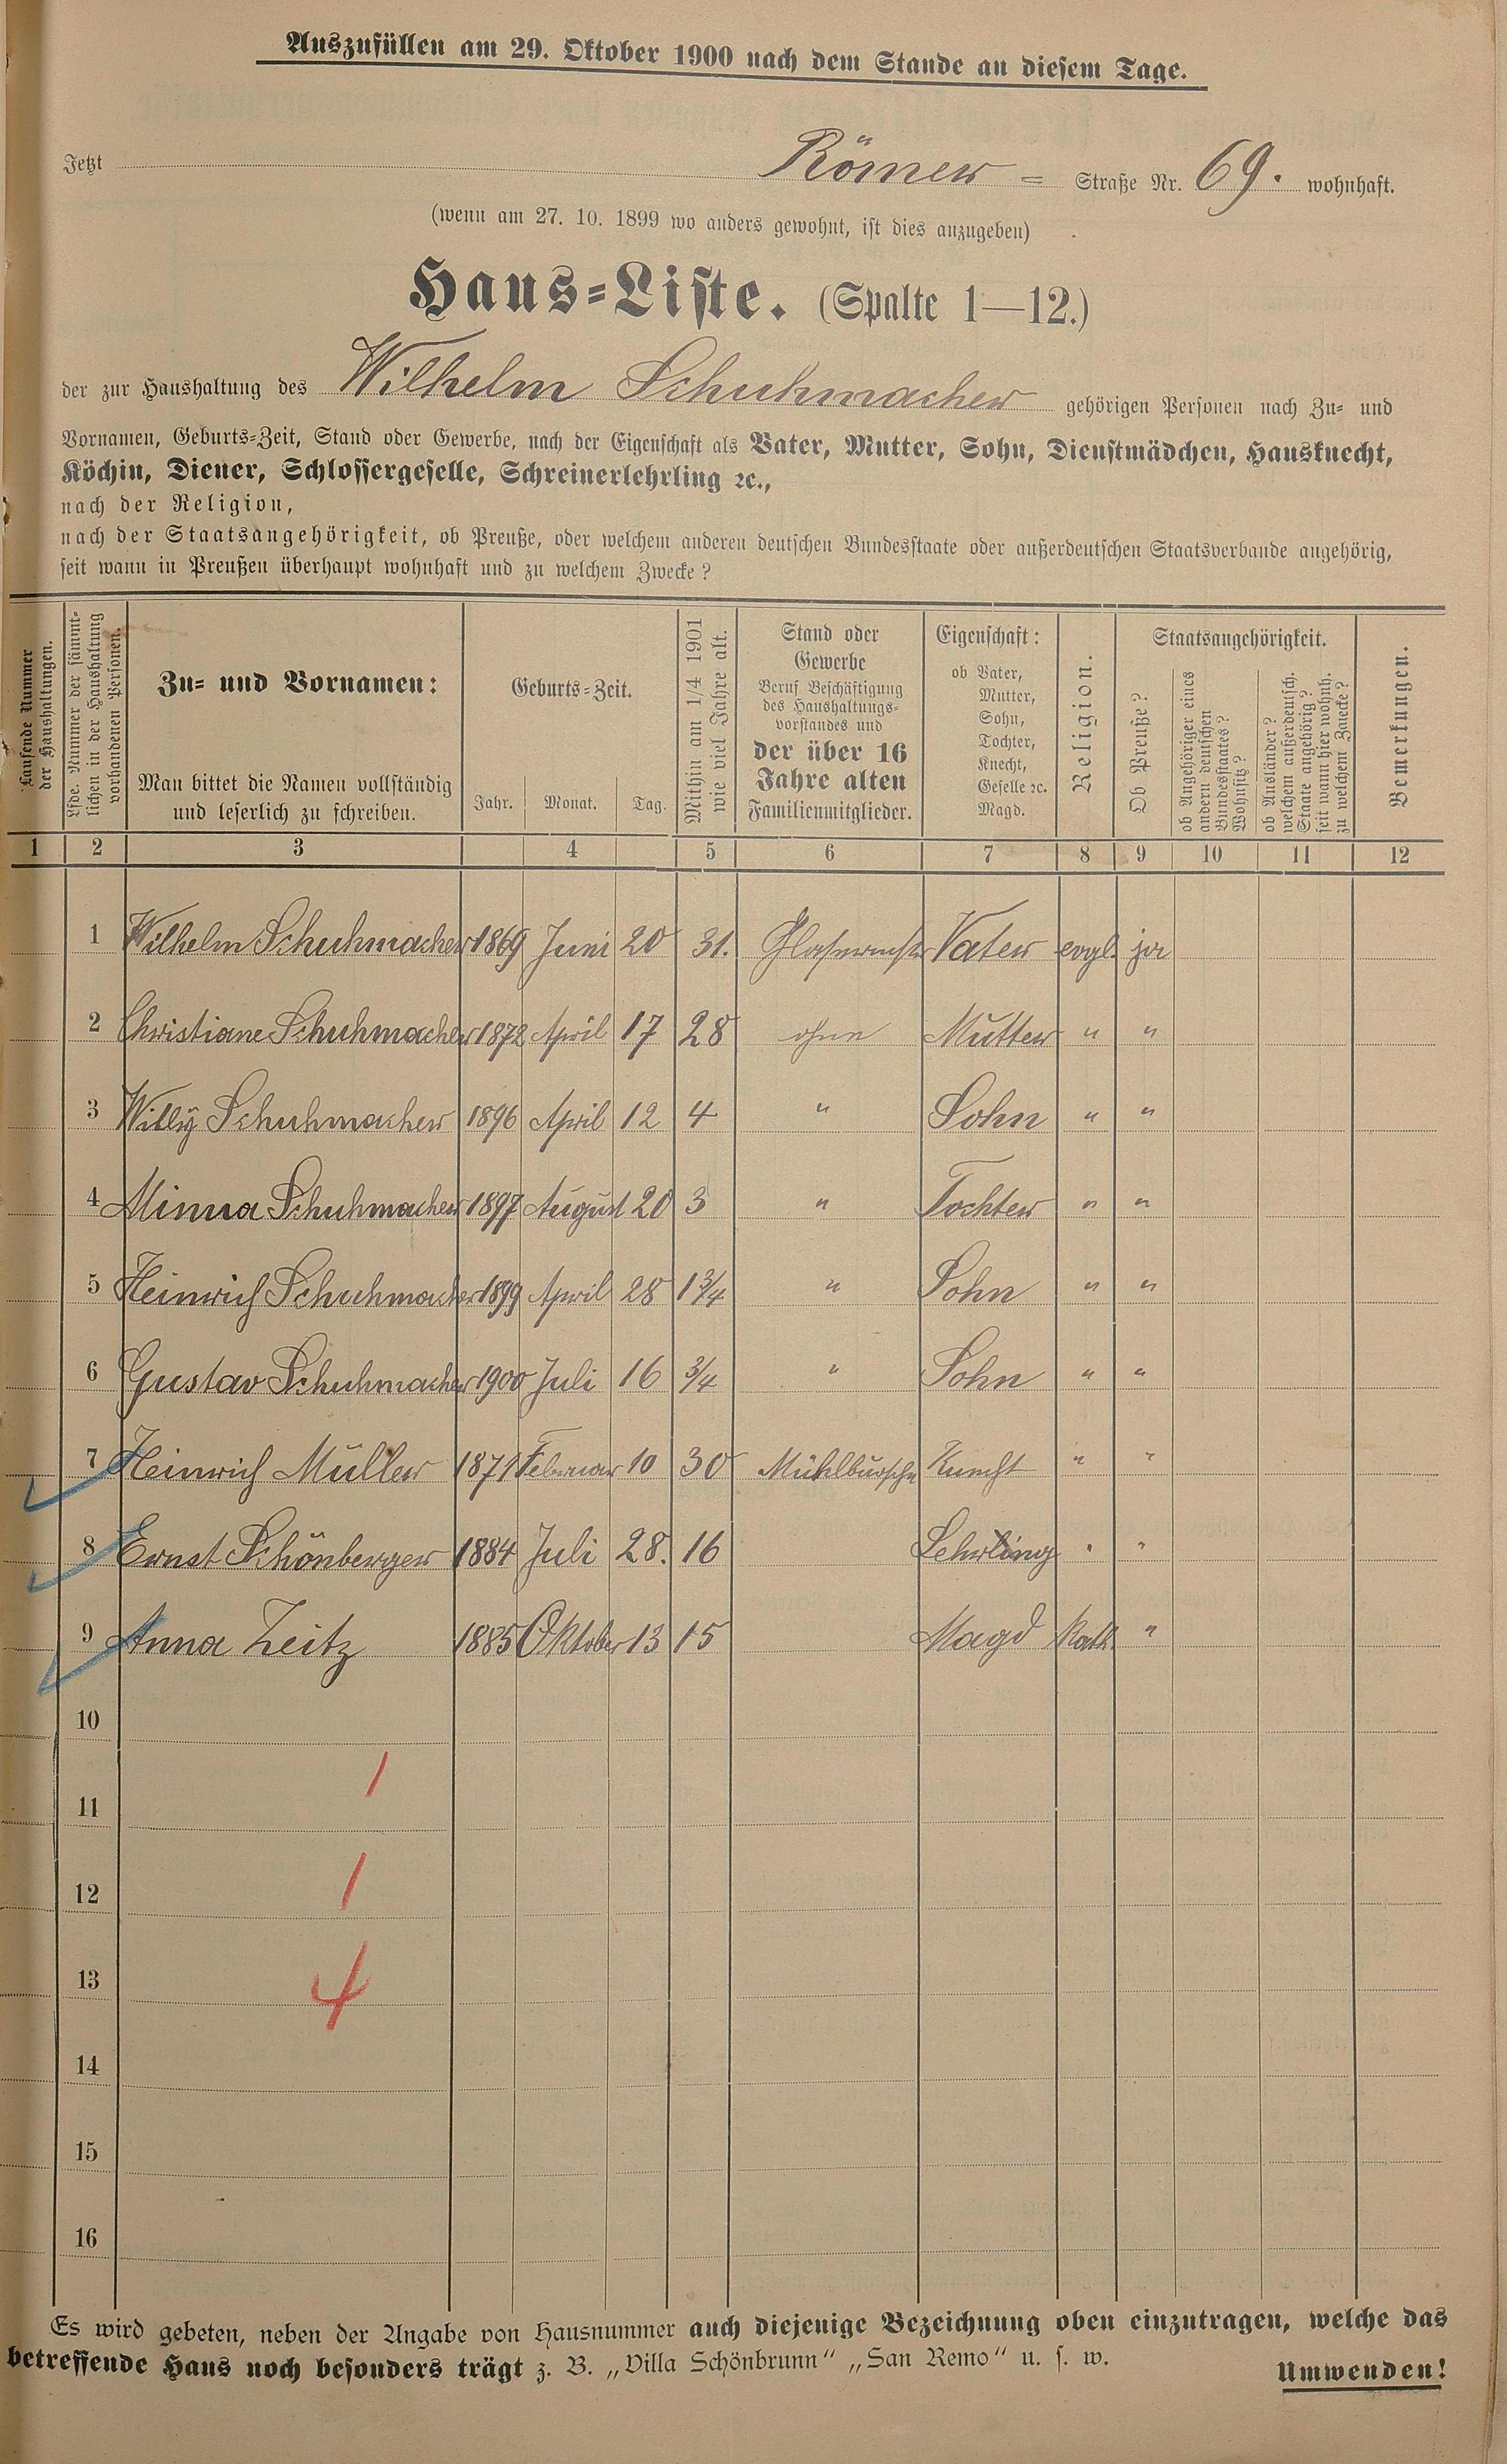 Auszufüllen am 29. Oktober 1900 nach dem Stande an diesem Tage.
Jetzt Römer = Straße Nr. 69. wohnhaft.
(wenn am 27. 10. 1899 wo anders gewohnt, ist dies anzugeben)
Haus=Liste. (Spalte 1—12.)
der zur Haushaltung des Wilhelm Schuhmacher gehörigen Personen nach Zu= und
Vornamen, Geburts=Zeit, Stand oder Gewerbe, nach der Eigenschaft als Vater, Mutter, Sohn, Dienstmädchen, Hausknecht,
Köchin, Diener, Schlossergeselle, Schreinerlehrling ꝛc.,
nach der Religion,
nach der Staatsangehörigkeit, ob Preuße, oder welchem anderen deutschen Bundesstaate oder außerdeutschen Staatsverbande angehörig,
seit wann in Preußen überhaupt wohnhaft und zu welchem Zwecke?
Laufende Nummer
der Haushaltungen.
Lfde. Nummer der sämmt-
lichen in der Haushaltung
vorhandenen Personen.
Zu= und Vornamen:
Man bittet die Namen vollständig
und leserlich zu schreiben.
Geburts=Zeit.
Jahr. Monat. Tag.
Mithin am 1/4 1901
wie viel Jahre alt.
Stand oder
Gewerbe
Beruf Beschäftigung
des Haushaltungs=
vorstandes und
der über 16
Jahre alten
Familienmitglieder.
Eigenschaft:
ob Vater,
Mutter,
Sohn,
Tochter,
Knecht,
Geselle ꝛc.
Magd.
Religion.
Staatsangehörigkeit.
Ob Preuße?
ob Angehöriger eines
andern deutschen
Bundesstaates?
Wohnsitz?
ob Ausländer?
welchem außerdeutsch.
Staate angehörig?
seit wann hier wohnh.
zu welchem Zwecke?
Bemerkungen.
1 2 3 4 5 6 7 8 9 10 11 12
1 Wilhelm Schuhmacher 1869 Juni 20 31. Glasermstr Vater evgl. ja
2 Christiane Schuhmacher 1872 April 17 28 ohne Mutter " "
3 Willy Schuhmacher 1896 April 12 4 " Sohn " "
4 Minna Schuhmacher 1897 August 20 3 " Tochter " "
5 Heinrich Schuhmacher 1899 April 28 1 3/4 " Sohn " "
6 Gustav Schuhmacher 1900 Juli 16 3/4 " Sohn " "
7 Heinrich Müller 1871 Februar 10 30 Mühlbursche Knecht " "
8 Ernst Schönberger 1884 Juli 28. 16 Lehrling " "
9 Anna Zeitz 1885 Oktober 13 15 Magd Kath. "
10
1
11
12
1
13
4
14
15
16
Es wird gebeten, neben der Angabe von Hausnummer auch diejenige Bezeichnung oben einzutragen, welche das
betreffende Haus noch besonders trägt z. B. „Villa Schönbrunn“ „San Remo“ u. s. w.
Umwenden!